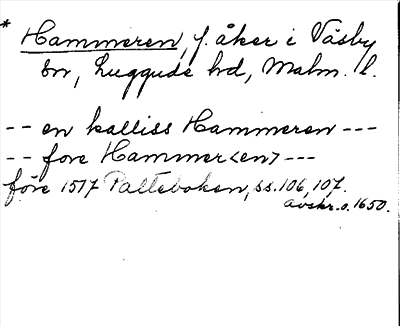 * Hammeren, f. åker i Väsby
sn, Luggude hd, Malm. l.
-- en kalliss Hammeren ---
-- fore Hammer<en> ---
före 1517 Palteboken, ss. 106, 107.
avskr. o. 1650.